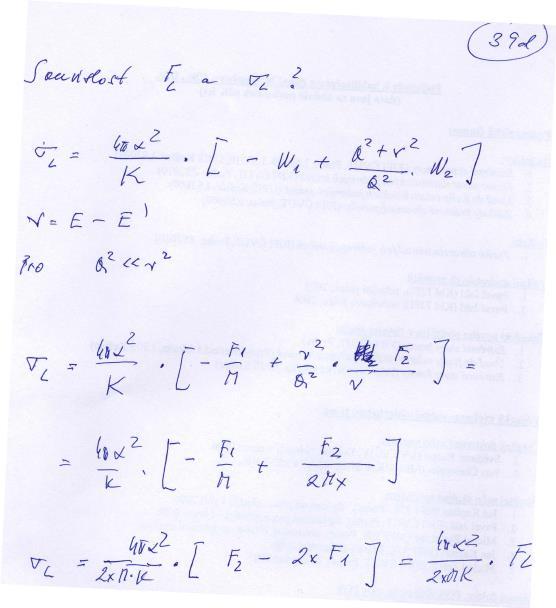 39d
Souvislost F_L a σ_L ?
σ_L = 4πα²/K · [ - W₁ + (Q² + ν²)/Q² · W₂ ]
ν = E - E'
Pro Q² << ν²
σ_L = 4πα²/K · [ - F₁/M + ν²/Q² · F₂/ν ] =
= 4πα²/K · [ - F₁/M + F₂/2Mx ]
σ_L = 4πα²/2xM·K · [ F₂ - 2x F₁ ] = 4πα²/2xMK · F_L